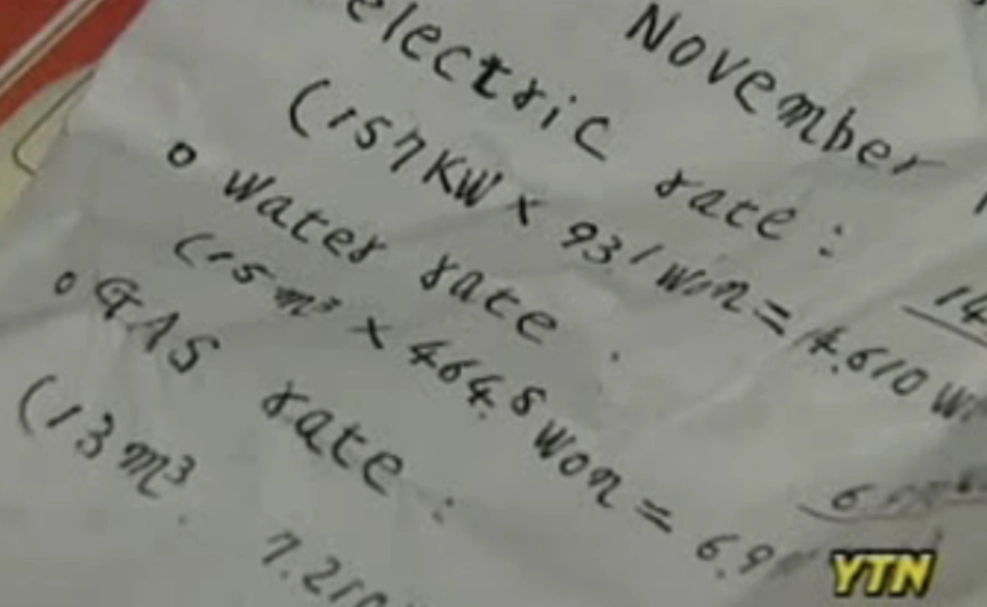 November
electric rate :
(157KW × 93.1 won = 14.610 W
14
o Water rate :
(15 m³ × 464.8 won = 6.9
6
o GAS rate :
(13 m³
7.210
YTN